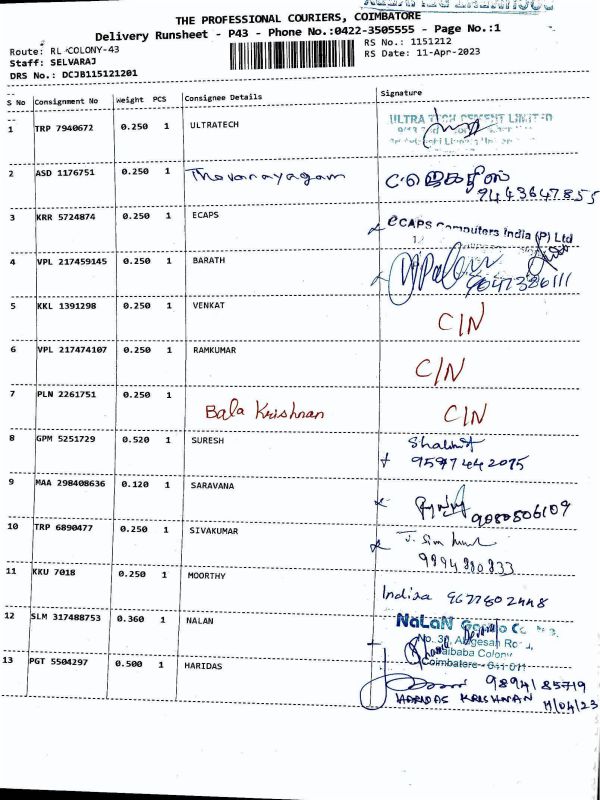 THE PROFESSIONAL COURIERS, COIMBATORE
Delivery Runsheet - P43 - Phone No.:0422-3505555 - Page No.:1
Route: RL COLONY-43
RS No.: 1151212
Staff: SELVARAJ
RS Date: 11-Apr-2023
DRS No.: DCJB115121201
S No Consignment No Weight PCS Consignee Details Signature
1 TRP 7940672 0.250 1 ULTRATECH ULTRA TECH CEMENT LIMITED
2 ASD 1176751 0.250 1 Thevanayagam
9443647855
3 KRR 5724874 0.250 1 ECAPS eCAPS Computers India (P) Ltd
4 VPL 217459145 0.250 1 BARATH
9047386111
5 KKL 1391298 0.250 1 VENKAT C/N
6 VPL 217474107 0.250 1 RAMKUMAR C/N
7 PLN 2261751 0.250 1 Bala Krishnan C/N
8 GPM 5251729 0.520 1 SURESH
9597442075
9 MAA 298408636 0.120 1 SARAVANA 9080506109
10 TRP 6890477 0.250 1 SIVAKUMAR
9894880833
11 KKU 7018 0.250 1 MOORTHY Indira 9677802448
12 SLM 317488753 0.360 1 NALAN NaLaN
Saibaba Colony
Coimbatore - 641 011
13 PGT 5504297 0.500 1 HARIDAS 9894185719
HARIDAS KRISHNAN 11/04/23